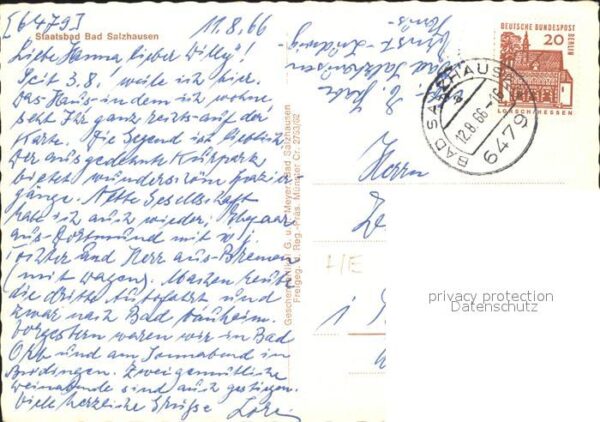 [6479]
11.8.66
Staatsbad Bad Salzhausen
Liebe Hanna, lieber Willy!
Seit 3.8. weile ich hier.
Das Haus, in dem ich wohne,
seht Ihr ganz rechts auf der
Karte. Die Gegend ist lieblich
Der ausgedehnte Kurpark
bietet wunderschöne Spazier-
gänge. Nette Gesellschaft
habe ich auch wieder, Ehepaar
aus Dortmund mit
Tochter und Herr aus Bremen
(mit Wagen). Machen heute
die dritte Autofahrt und
zwar nach Bad Nauheim.
Vorgestern waren wir in Bad
Orb und am Sonnabend in
Büdingen. Zwei gemütliche
Weinabende sind auch gestiegen.
Viele herzliche Grüße
Bad Salzhausen
Ernst-Ludwig-
Meyer, Bad Salzhausen
Freigeg. v. Reg.-Präs. Münster Cr. 2753/62
DEUTSCHE BUNDESPOST
BERLIN
20
LORSCH/HESSEN
BAD SALZHAUSEN
12.8.66
6479
Herrn
H/E
privacy protection
Datenschutz